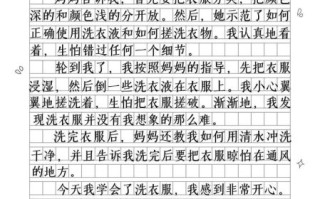 妈妈告诉我，首先要把衣服分类，把颜色
深的和颜色浅的分开放。然后，她示范了如何
正确使用洗衣液和如何搓洗衣物。我认真地看
着，生怕错过任何一个细节。
轮到我了，我按照妈妈的指导，先把衣服
浸湿，然后倒一些洗衣液在衣服上。我小心翼
翼地搓洗着，生怕把衣服搓破。渐渐地，我发
现洗衣服并没有我想象的那么难。
洗完衣服后，妈妈还教我如何用清水冲洗
干净，并且告诉我洗完后要把衣服晾怕在通风
的地方。
今天我学会了洗衣服，我感到非常开心。